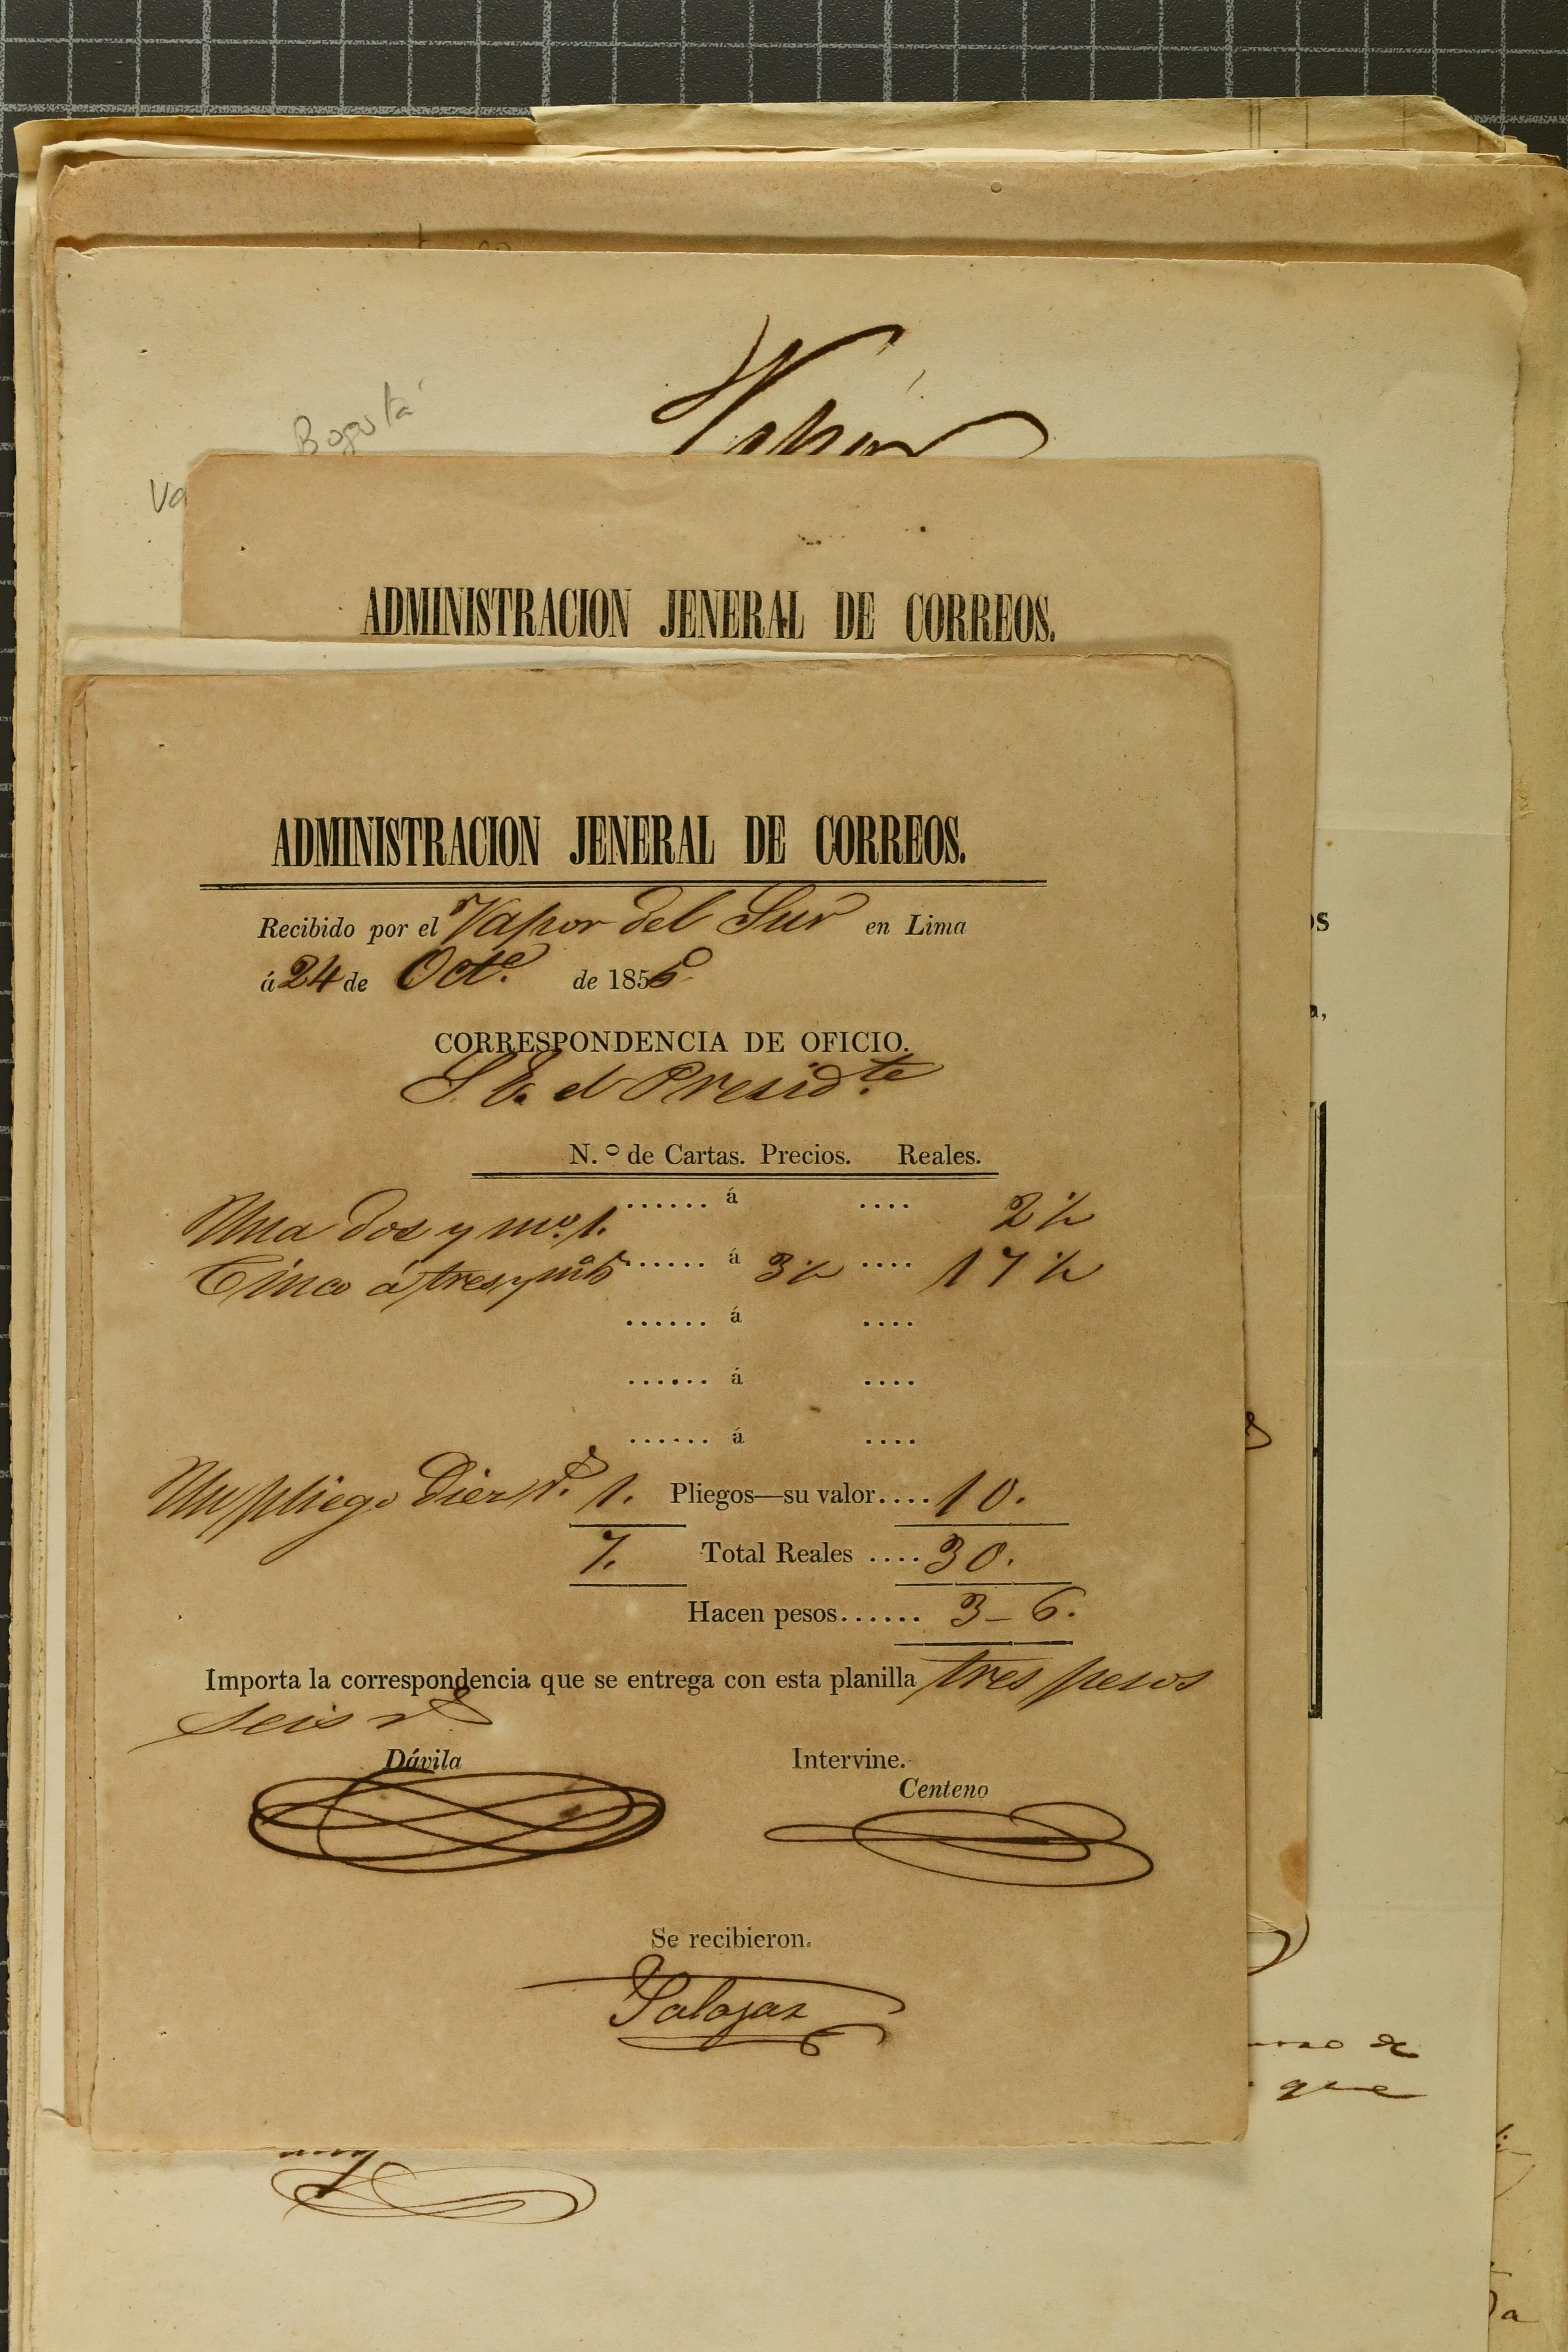 Bogotá
ADMINISTRACION JENERAL DE CORREOS.
ADMINISTRACION JENERAL DE CORREOS.
Recibido por el Vapor del Sur en Lima
á 24 de Octe. de 1856
CORRESPONDENCIA DE OFICIO.
S. E. el Presidte.
N.º de Cartas. Precios. Reales.
Una dos y mo. 1. ...... á .... 2½
Cinco á tres y ...... á 3½ .... 17½
...... á ....
...... á ....
...... á ....
Un pliego Diez rs. 1. Pliegos—su valor.... 10.
7. Total Reales .... 30.
Hacen pesos...... 3-6.
Importa la correspondencia que se entrega con esta planilla tres pesos
seis rs
Dávila Intervine.
Centeno
Se recibieron.
Salazar
de
que